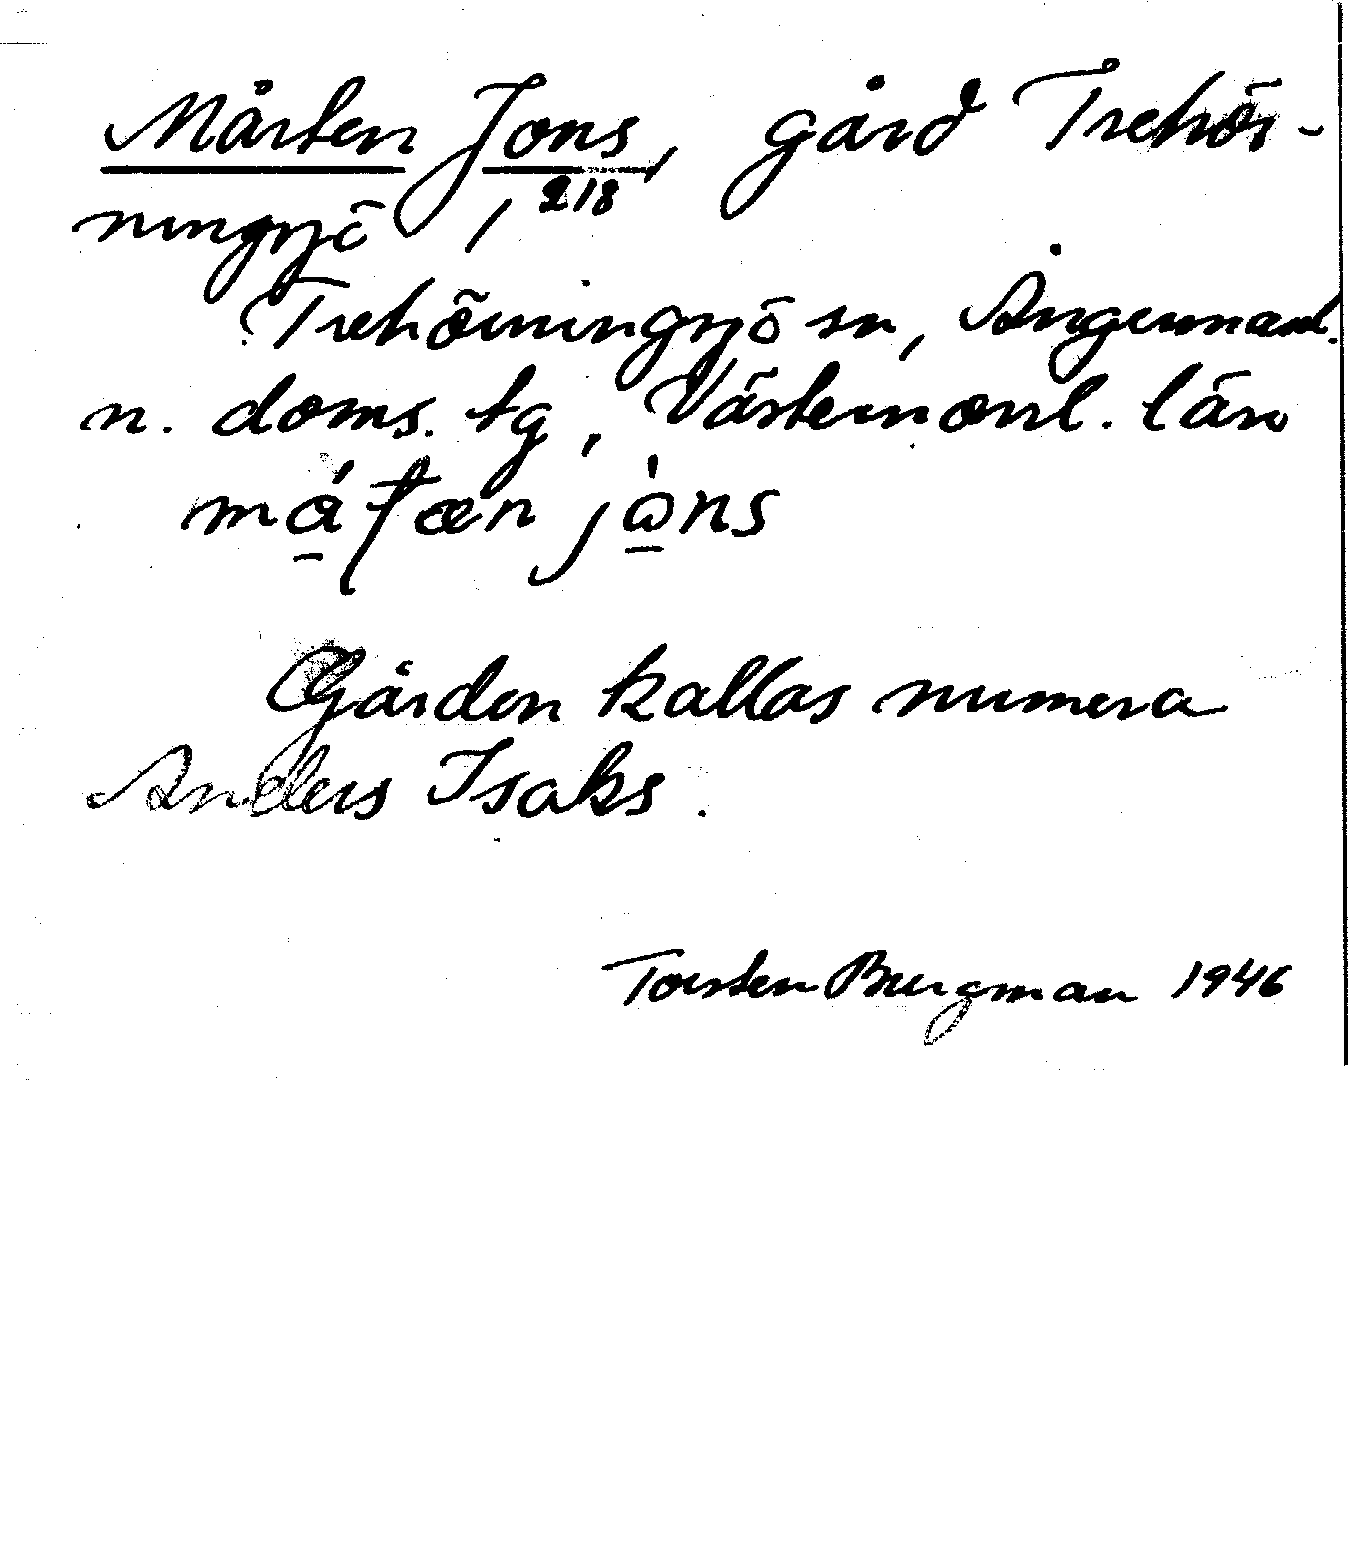 Mårten Jons, gård Trehör-
ningsjö 1 218
Trehörningsjö sn, Ångermanl.
n. doms. tg, Västernorrl. län
Gården kallas numera
Anders Isaks.
Torsten Bergman 1946